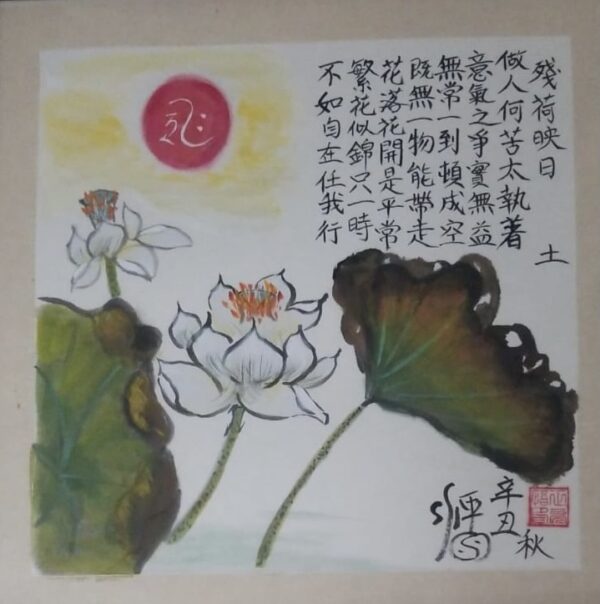 殘荷映日 土
做人何苦太執著
意氣之爭實無益
無常一到頓成空
既無一物能帶走
花落花開是平常
繁花似錦只一時
不如自在任我行
秋
辛丑